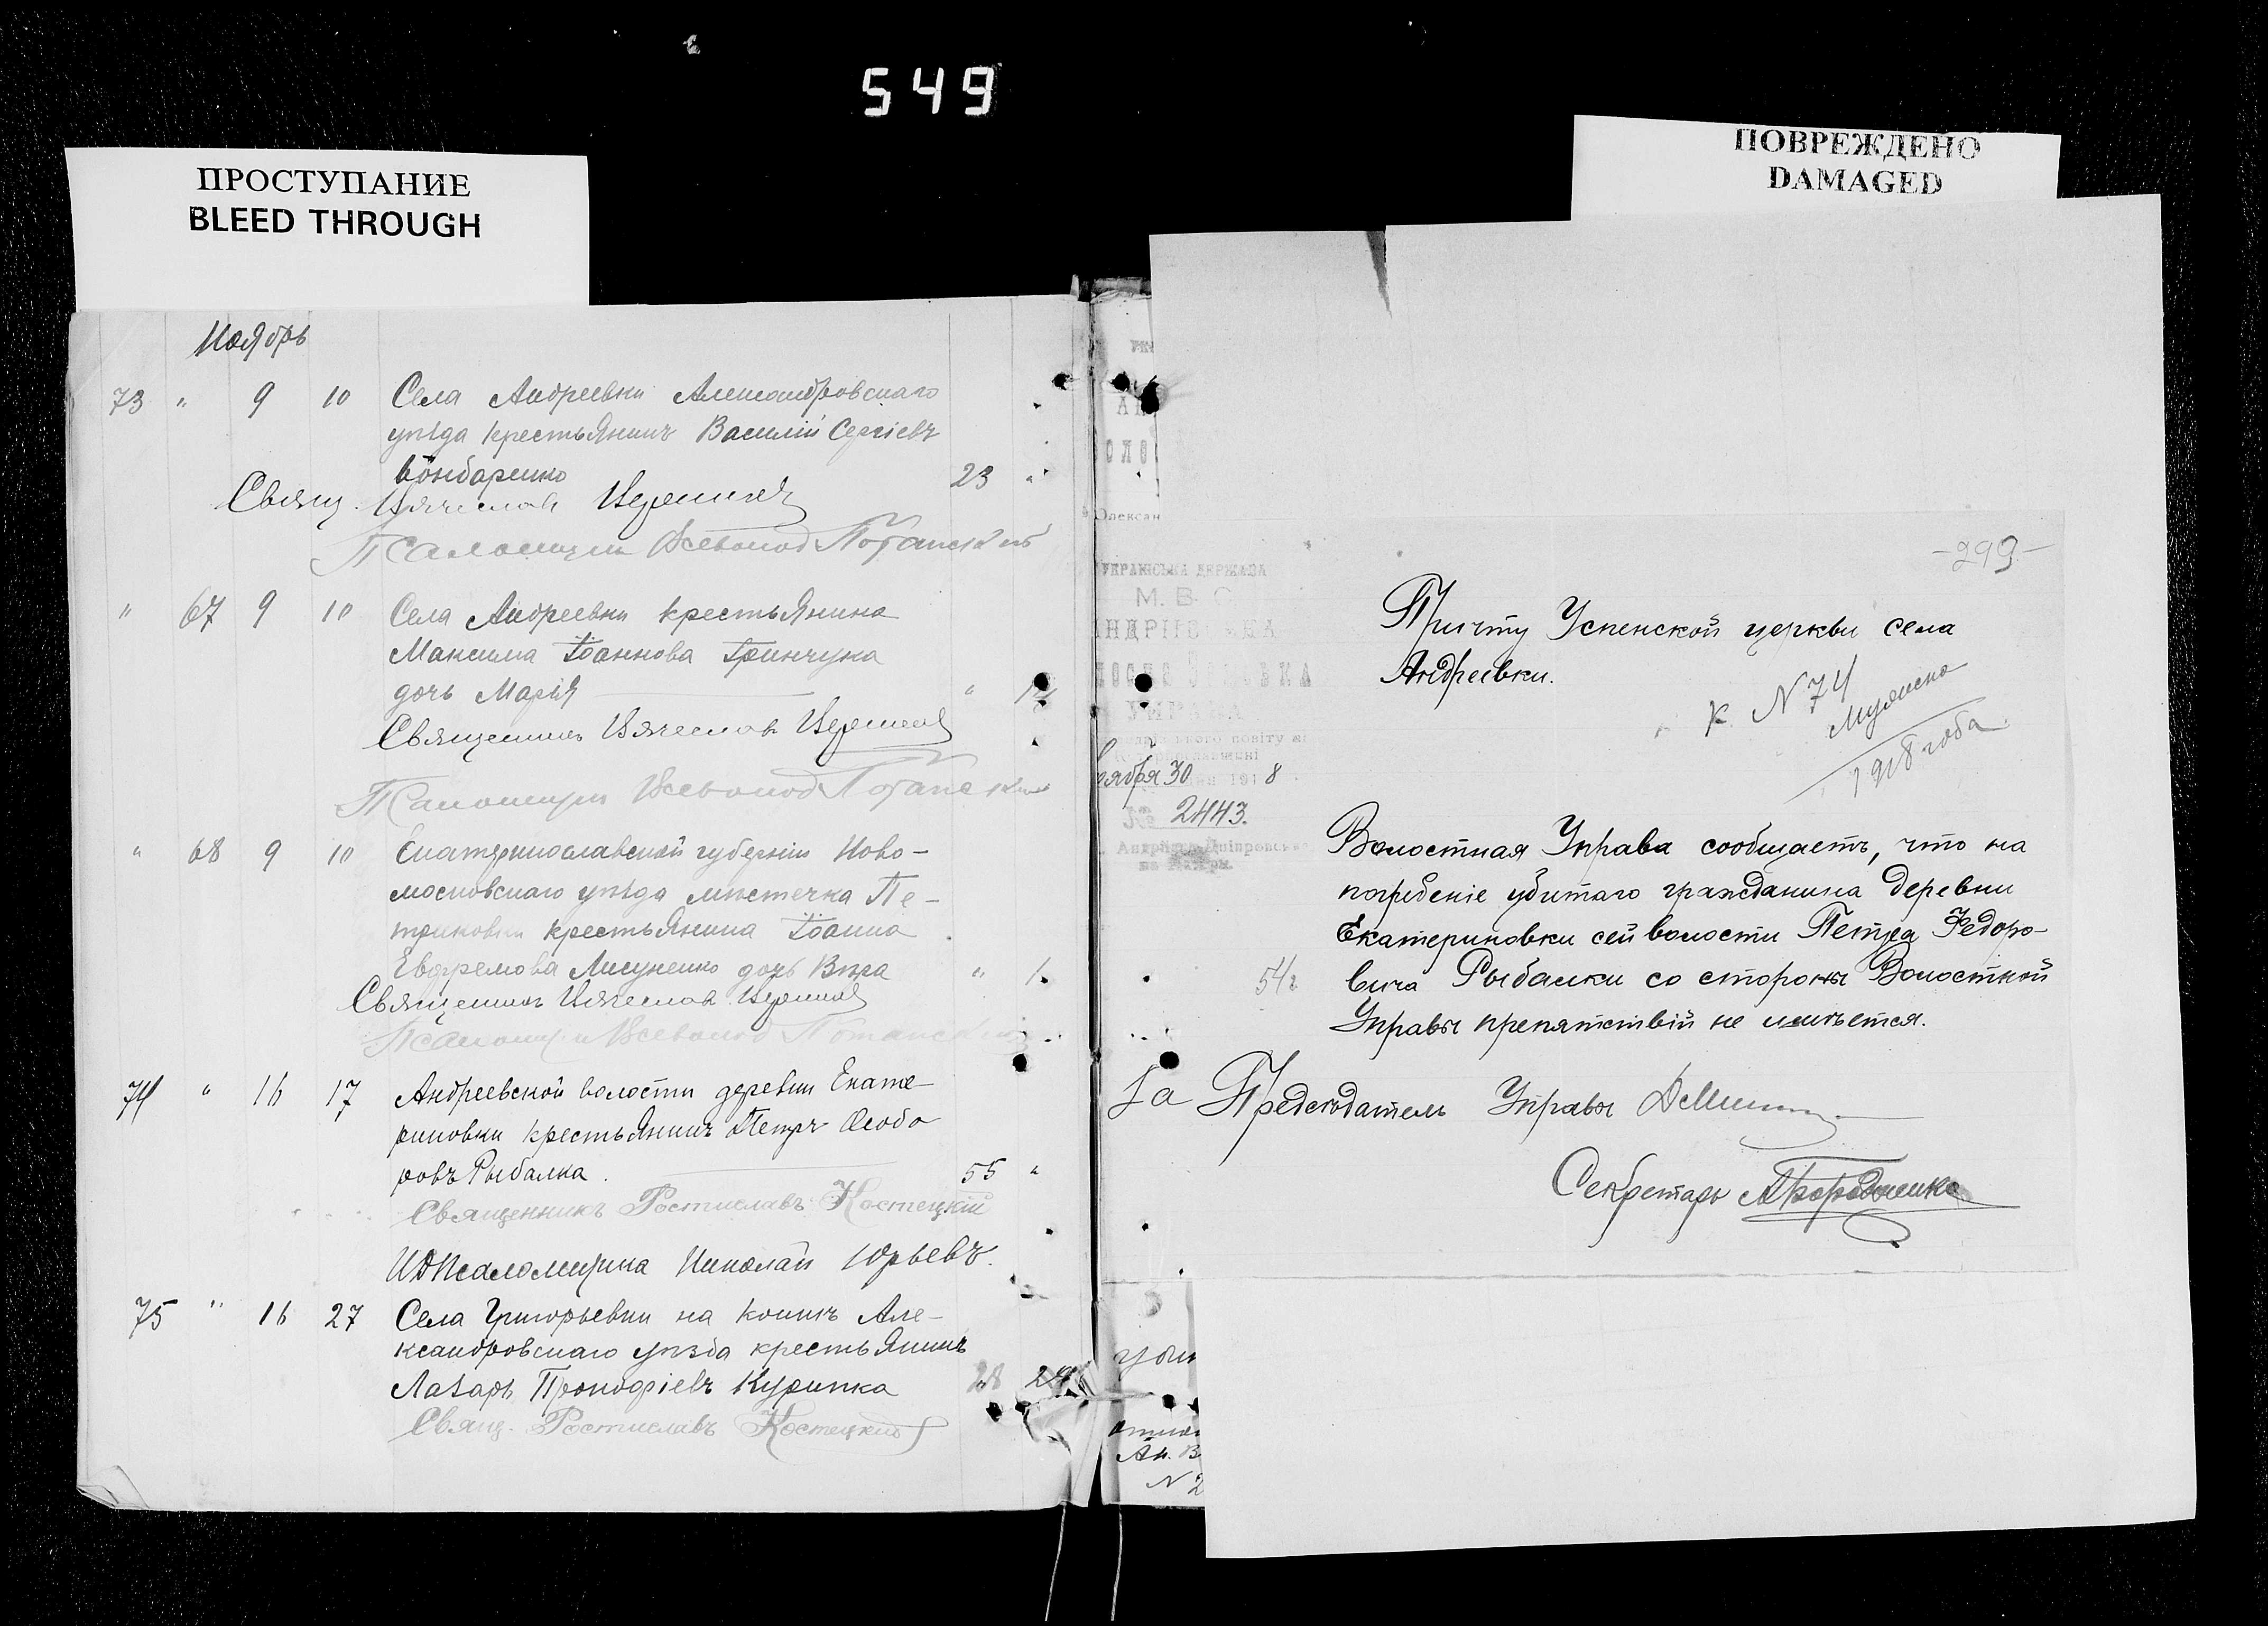 549
ПРОСТУПАНИЕ
BLEED THROUGH
ПОВРЕЖДЕНО
DAMAGED
Ноябрь
73 " 9 10 Села Андреевки Александровскаго
уѣзда крестьянинъ Василий Сергіевъ
Бондаренко 23 "
Свящ. Вячеслав
Псаломщик Всеволод Потапский
" 67 9 10 Села Андреевки крестьянина
Максима Іоаннова Гринчука
дочь Марія "
Священник Вячеслав
Псаломщик Всеволод Потапский
" 68 9 10 Екатеринославской губерніи Ново-
московскаго уѣзда мѣстечка Пе-
триковки крестьянина Іоанна
Евфремова Лисуненко дочь Вѣра " 1.
Священник Вячеслав
Псаломщик Всеволод Потапский
74 " 16 17 Андреевской волости деревни Екате-
риновки крестьянинъ Петръ Ѳеодо
ровъ Рыбалка. 55 "
Священникъ Ростиславъ Костецкій
ИД Псаломщика Николай Юрьевъ.
75 " 16 27 Села Григорьевки на Конкѣ Але-
ксандровскаго уѣзда крестьянинъ
Лазарь Прокофіевъ Курипка 28
Свящ. Ростиславъ Костецкій
-299-
Причту Успенской церкви села
Андреевки.
К N 74
Мужеска
1918 года
УКРАЇНСЬКА ДЕРЖАВА
М. В. С.
УПРАВА
ября 30 191 8
№ 2443.
Волостная Управа сообщаетъ, что на
погребеніе убитаго гражданина деревни
Екатериновки сей волости Петра Федоро-
вича Рыбалки со стороны Волостной
Управы препятствій не имѣется.
За Председатель Управы
Секретарь
Ан. В
N 2